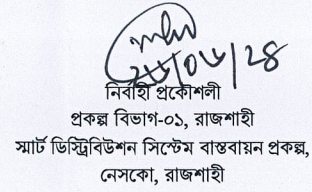 ২৬/০৬/২৪
নির্বাহী প্রকৌশলী
প্রকল্প বিভাগ-০১, রাজশাহী
স্মার্ট ডিস্ট্রিবিউশন সিস্টেম বাস্তবায়ন প্রকল্প,
নেসকো, রাজশাহী